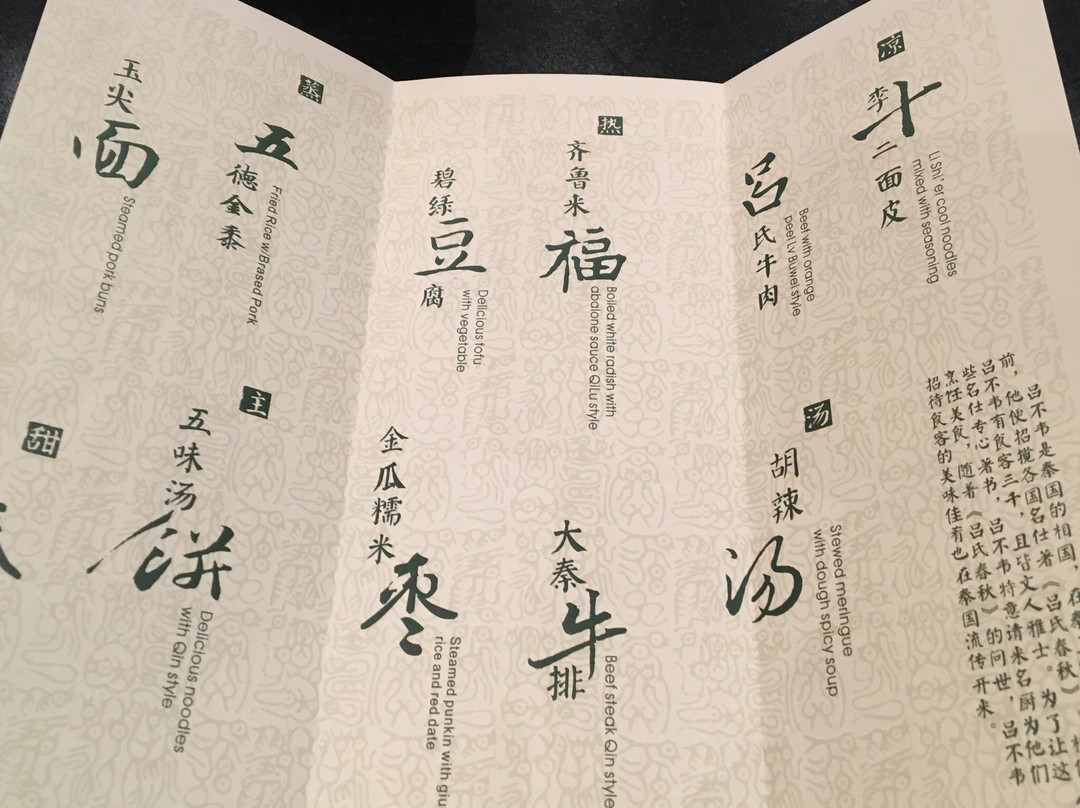 凉
李十二面皮
Li Shi' er cool noodles
mixed with seasoning
吕氏牛肉
Beef with orange
peel Lv Buwei style
汤
胡辣汤
Stewed meringue
with dough spicy soup
吕不韦是秦国的相国，在秦
前，他便招揽各国名仕著《吕氏春秋》
吕不韦有食客三千，且皆文人雅士。为了让这
些名仕专心著书，吕不韦特意请来名厨为他们
烹饪美食，随着《吕氏春秋》的问世，吕不韦
招待食客的美味佳肴也在秦国流传开来。
热
齐鲁米福
Boiled white radish with
abalone sauce QiLu style
碧绿豆腐
Delicious tofu
with vegetable
大秦牛排
Beef steak Qin style
金瓜糯米枣
Steamed punkin with glu
rice and red date
蒸
五德金黍
Fried Rice w/Brased Pork
玉尖面
Steamed pork buns
主
五味汤饼
Delicious noodles
with Qin style
甜